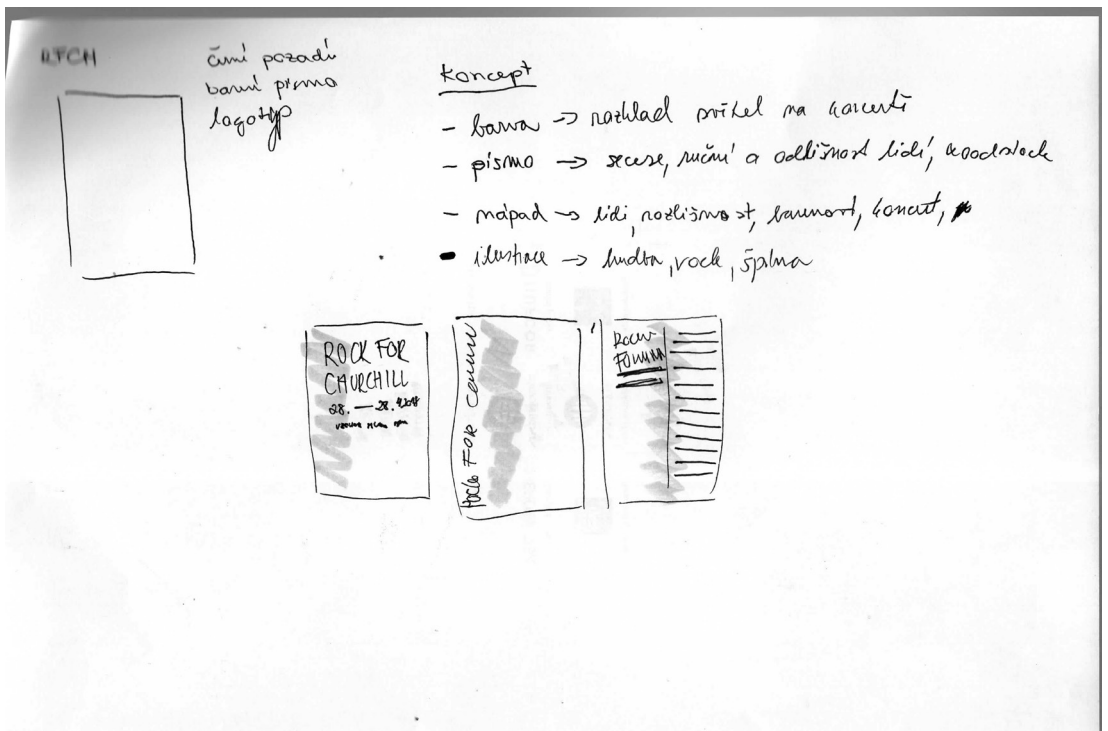 RFCH
černí pozadí
barevní písmo
logotyp
Koncept
- barva -> rozklad světel na koncertě
- písmo -> secese, ruční a odlišnost lidí, woodstock
- nápad -> lidi, rozlišnost, barevnost, koncert,
- ilustrace -> hudba, rock, špína
ROCK FOR
CHURCHILL
28. — 28.
ROCK FOR
ROCK